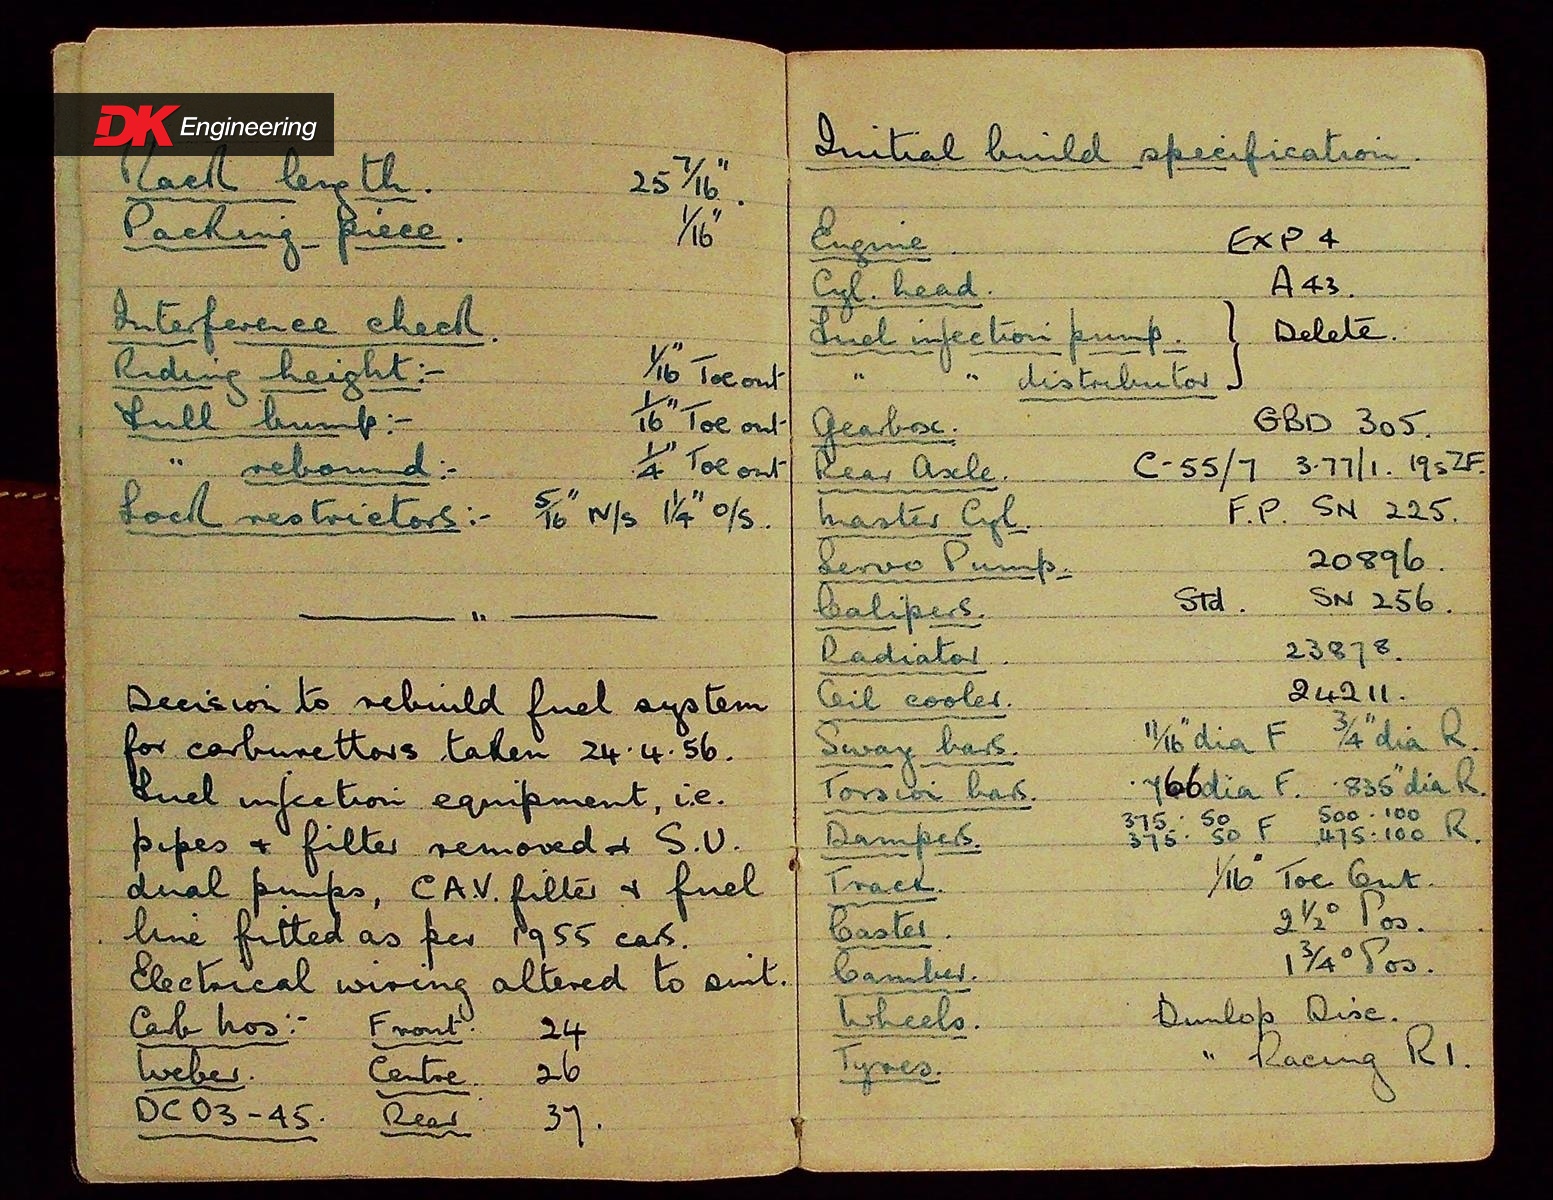 DK Engineering
Rack length. 25 7/16".
Packing piece. 1/16"
Interference check.
Riding height:- 1/16" Toe out
Full bump:- 1/16" Toe out
" rebound:- 1/4" Toe out
Lock restrictors:- 5/16" N/S 1 1/4" O/S.
"
Decision to rebuild fuel system
for carburettors taken 24.4.56.
Fuel injection equipment, i.e.
pipes + filter removed + S.U.
dual pumps, C.A.V. filter + fuel
line fitted as per 1955 cars.
Electrical wiring altered to suit.
Carb Nos:- Front. 24
Weber. Centre. 26
DCO3-45. Rear 37.
Initial build specification.
Engine EXP 4
Cyl. head. A 43.
Fuel injection pump. } Delete.
" " distributor
Gearbox. GBD 305.
Rear Axle. C-55/7 3.77/1. 19s ZF.
Master Cyl. F.P. SN 225.
Servo Pump. 20896.
Calipers. Std. SN 256.
Radiator. 23878.
Oil cooler. 24211.
Sway bars. 11/16" dia F 3/4" dia R.
Torsion bars. .766 dia F. .835" dia R.
Dampers. 375. 50 F 500.100 R.
375. 50 475.100
Track. 1/16" Toe Out.
Caster. 2 1/2° Pos.
Camber. 1 3/4° Pos.
Wheels. Dunlop Disc.
Tyres. " Racing R1.